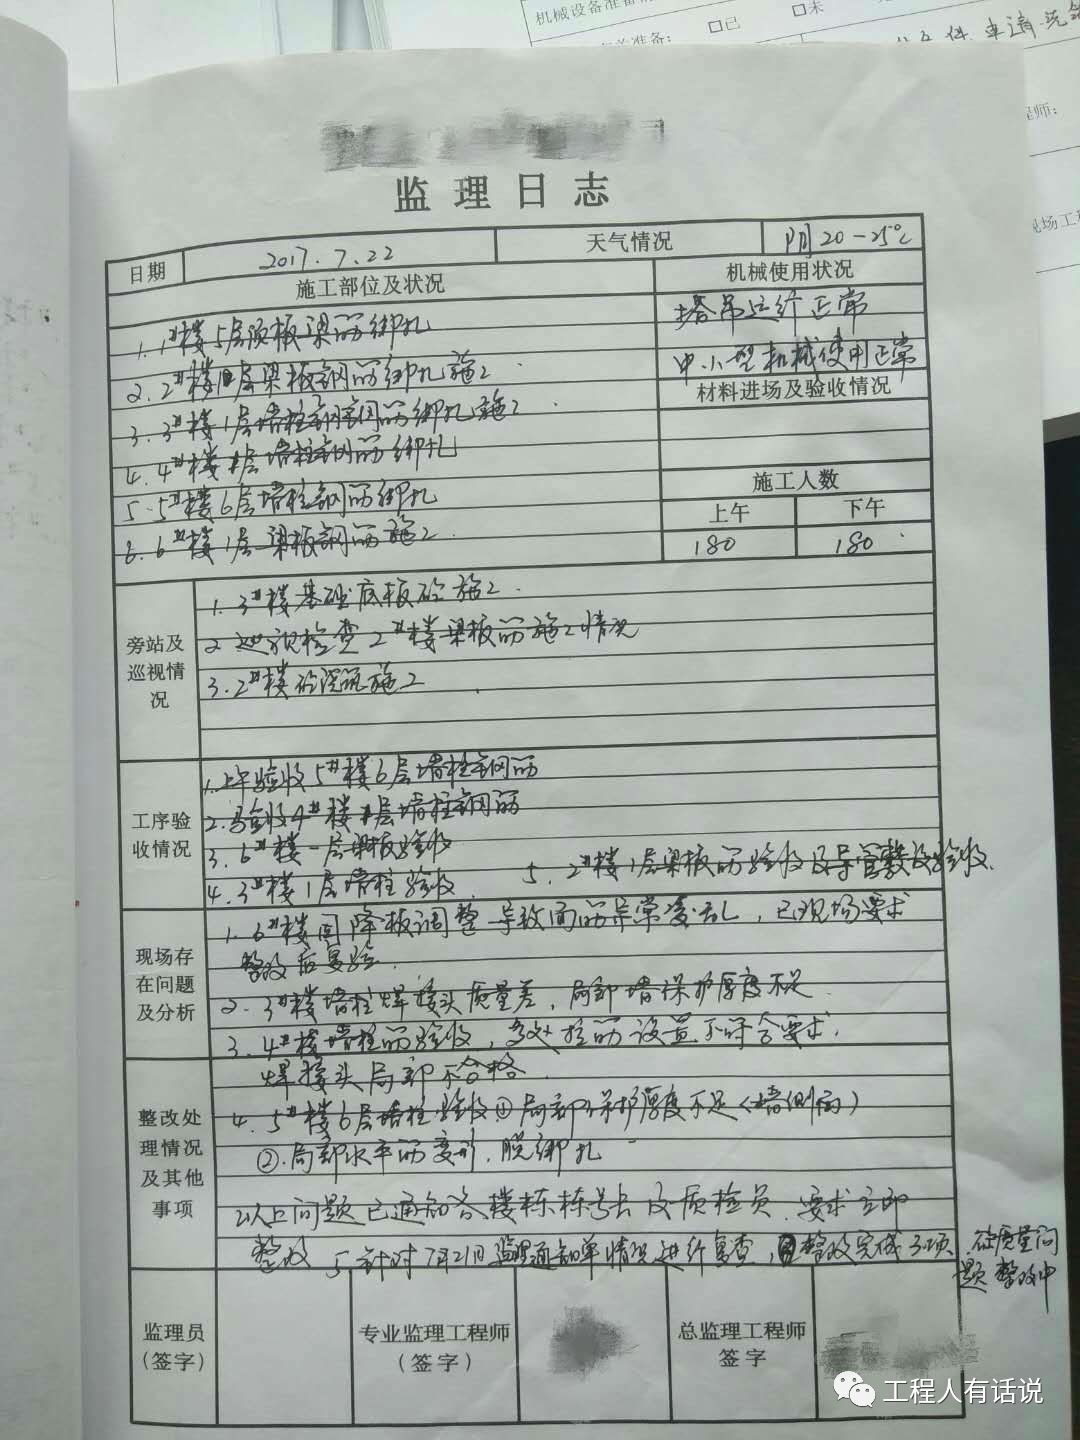 机械设备准备
□已
□未
准备：
程师：
现场工程
监理日志
日期
2017.7.22
天气情况
阴 20-25℃
施工部位及状况
机械使用状况
1. 1#楼5层顶板梁筋绑扎
塔吊运行正常
2. 2#楼1层梁板钢筋绑扎施工
中.小型机械使用正常
3. 3#楼1层墙柱钢筋绑扎施工
材料进场及验收情况
4. 4#楼1层墙柱钢筋绑扎
5. 5#楼6层墙柱钢筋绑扎
施工人数
上午
下午
6. 6#楼1层梁板钢筋施工
180
180
旁站及巡视情况
1. 3#楼基础底板砼施工
2 巡视检查2#楼梁板筋施工情况
3. 2#楼砼浇筑施工
工序验收情况
1.上午验收5#楼6层墙柱钢筋
2.验收4#楼1层墙柱钢筋
3. 6#楼一层梁板验收
4. 3#楼1层墙柱验收
5. 2#楼1层梁板筋验收及导管敷设验收
现场存在问题及分析
1. 6#楼因降板调整导致面筋异常凌乱，已现场要求
整改后复验.
2. 3#楼墙柱焊接头质量差，局部墙保护厚度不足
3. 4#楼墙柱筋验收，多处拉筋设置不符合要求.
焊接头局部不合格
整改处理情况及其他事项
4. 5#楼6层墙柱验收①局部保护厚度不足（墙侧面）
②.局部水平筋变形.脱绑扎
以上问题已通知各楼栋栋号长及质检员.要求立即
整改
5 针对7月21日监理通知单情况进行复查，整改完成3项
砼质量问
题整改中
监理员
（签字）
专业监理工程师
（签字）
总监理工程师
签字
工程人有话说